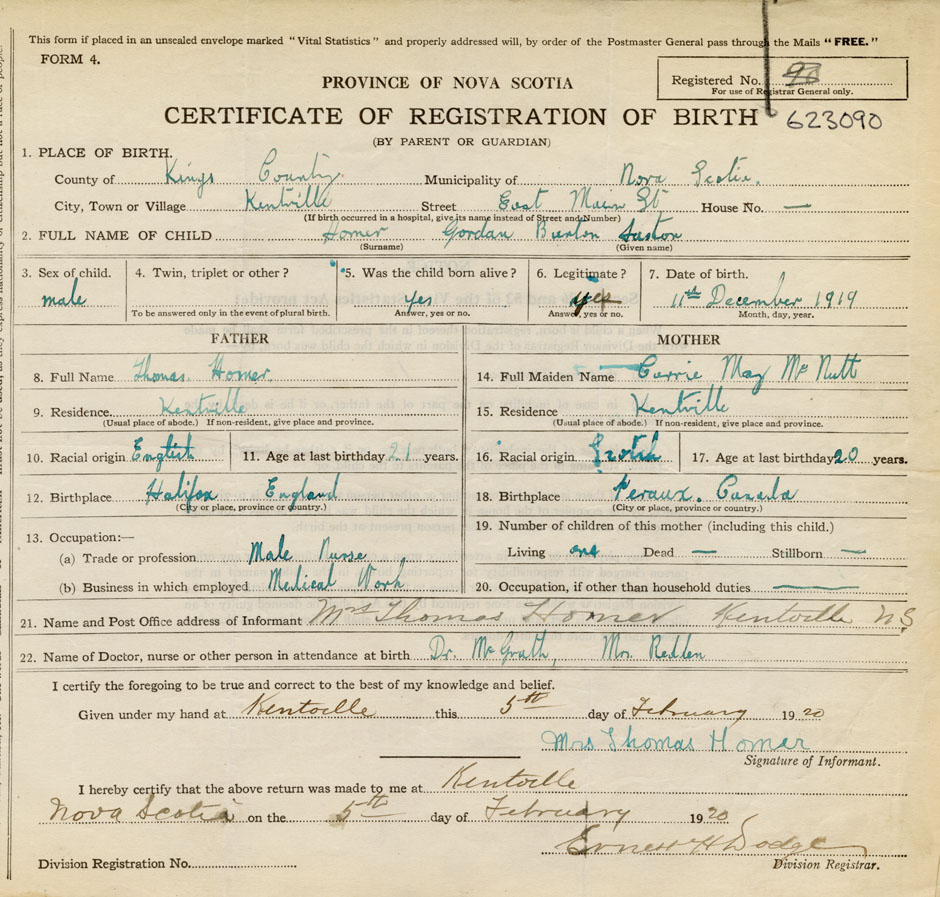 This form if placed in an unsealed envelope marked "Vital Statistics" and properly addressed will, by order of the Postmaster General pass through the Mails "FREE."
FORM 4.
PROVINCE OF NOVA SCOTIA
Registered No.
For use of Registrar General only.
CERTIFICATE OF REGISTRATION OF BIRTH 623090
(BY PARENT OR GUARDIAN)
1. PLACE OF BIRTH.
County of Kings County. Municipality of Nova Scotia.
City, Town or Village Kentville Street East Main St House No. —
(If birth occurred in a hospital, give its name instead of Street and Number)
2. FULL NAME OF CHILD Homer Gordan Burton
(Surname) (Given name)
3. Sex of child. 4. Twin, triplet or other? 5. Was the child born alive? 6. Legitimate? 7. Date of birth.
male Yes yes 11th December 1919
To be answered only in the event of plural birth. Answer, yes or no. Answer, yes or no. Month, day, year.
FATHER MOTHER
8. Full Name Thomas. Homer. 14. Full Maiden Name Carrie May McNutt
9. Residence Kentville 15. Residence Kentville
(Usual place of abode.) If non-resident, give place and province. (Usual place of abode.) If non-resident, give place and province.
10. Racial origin English 11. Age at last birthday 21 years. 16. Racial origin Scotch 17. Age at last birthday 20 years.
12. Birthplace Halifax England 18. Birthplace Peraux. Canada
(City or place, province or country.) (City or place, province or country.)
13. Occupation:— 19. Number of children of this mother (including this child.)
(a) Trade or profession Male Nurse Living one Dead — Stillborn —
(b) Business in which employed Medical Work 20. Occupation, if other than household duties —
21. Name and Post Office address of Informant Mrs Thomas Homer Kentville N S.
22. Name of Doctor, nurse or other person in attendance at birth Dr. McGrath, Mrs. Redden
I certify the foregoing to be true and correct to the best of my knowledge and belief.
Given under my hand at Kentville this 5th day of February 1920
Mrs Thomas Homer
Signature of Informant.
I hereby certify that the above return was made to me at Kentville
Nova Scotia on the 5th day of February 1920
Ernest H Dodge
Division Registration No. Division Registrar.